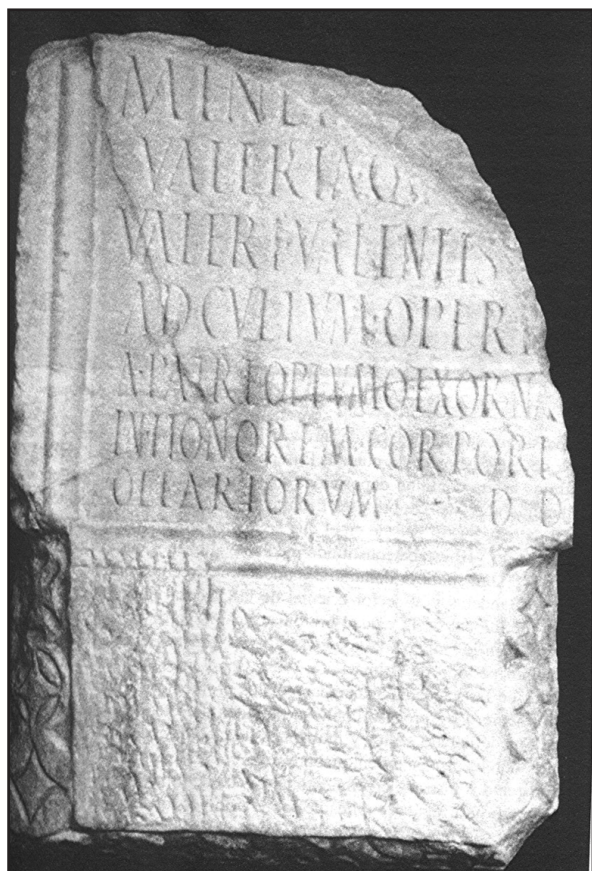 MINE
VALERIA·Q
VALERI·VALENTIS
AD CVLTVM·OPERI
A·PATRE OPTVMO EXORNA
IN·HONOREM·CORPORIS
OLEARIORVM D D